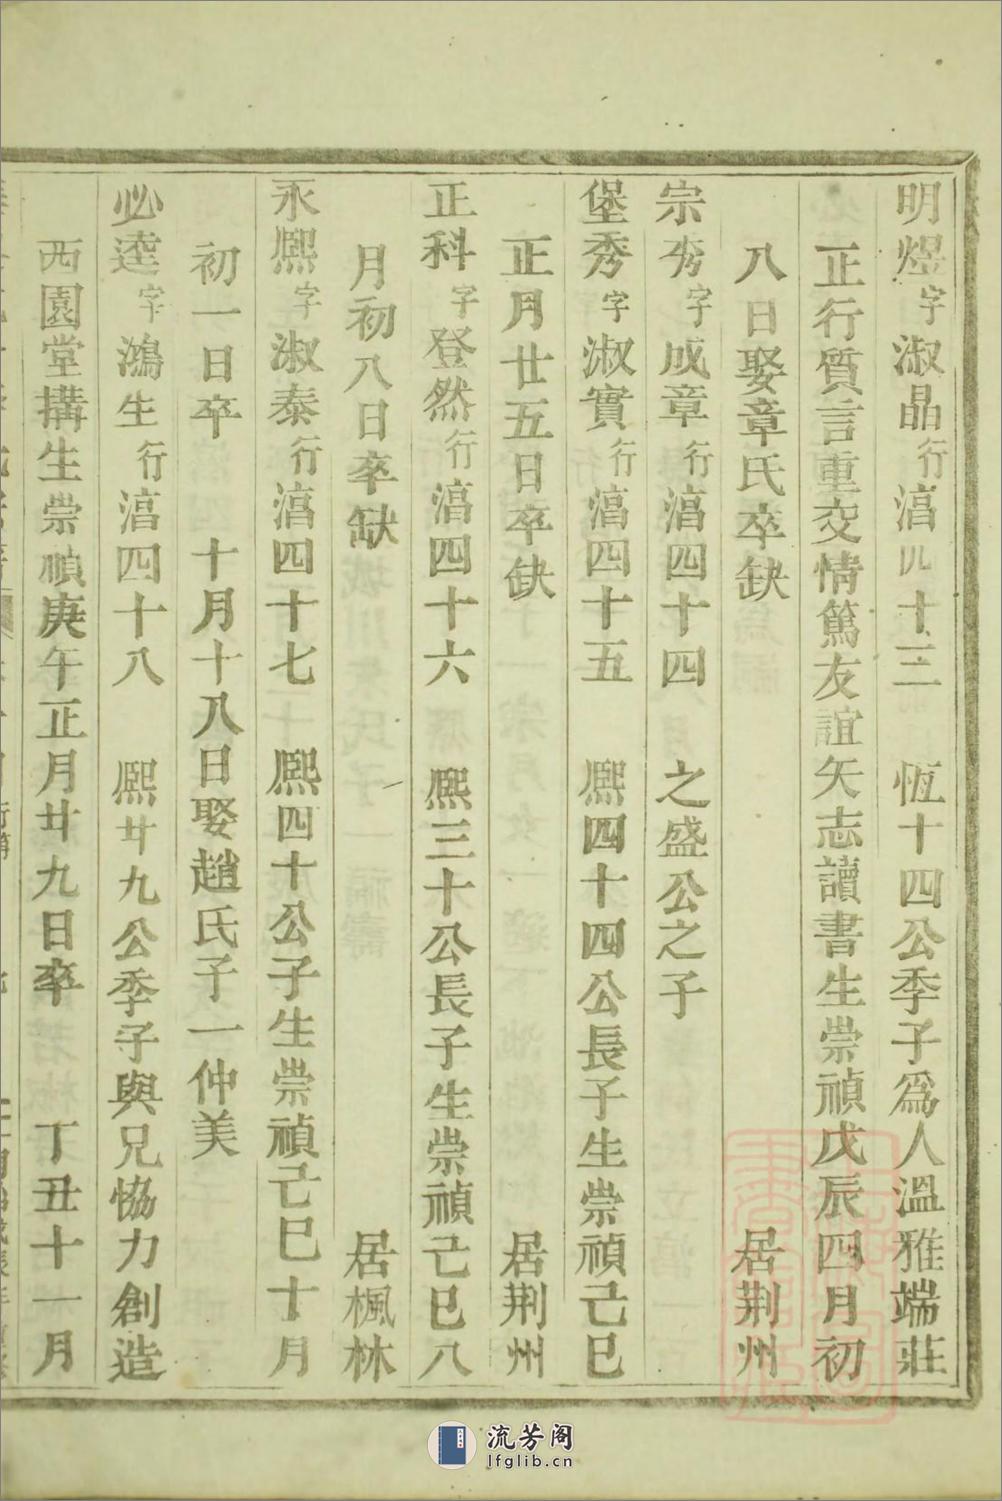 明煜字淑晶行湻四十三 恆十四公季子爲人溫雅端莊
正行質言重交情篤友誼矢志讀書生崇禎戊辰四月初
八日娶章氏卒缺 居荆州
宗秀字成章行湻四十四 之盛公之子
堡秀字淑實行湻四十五 熙四十四公長子生崇禎己巳
正月廿五日卒缺 居荆州
正科字登然行湻四十六 熙三十公長子生崇禎己巳八
月初八日卒缺 居楓林
永熙字淑泰行湻四十七 熙四十公子生崇禎己巳十月
初一日卒 十月十八日娶趙氏子一仲美
必達字鴻生行湻四十八 熙廿九公季子與兄恊力創造
西園堂搆生崇禎庚午正月廿九日卒 丁丑十一月
流芳阁
lfglib.cn